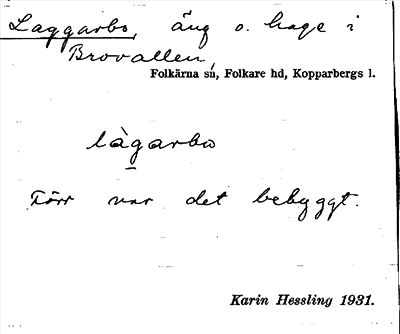 Laggarbo, äng o. hage i
Brovallen,
Folkärna sn, Folkare hd, Kopparbergs l.
làgarbo
Förr var det bebyggt.
Karin Hessling 1931.